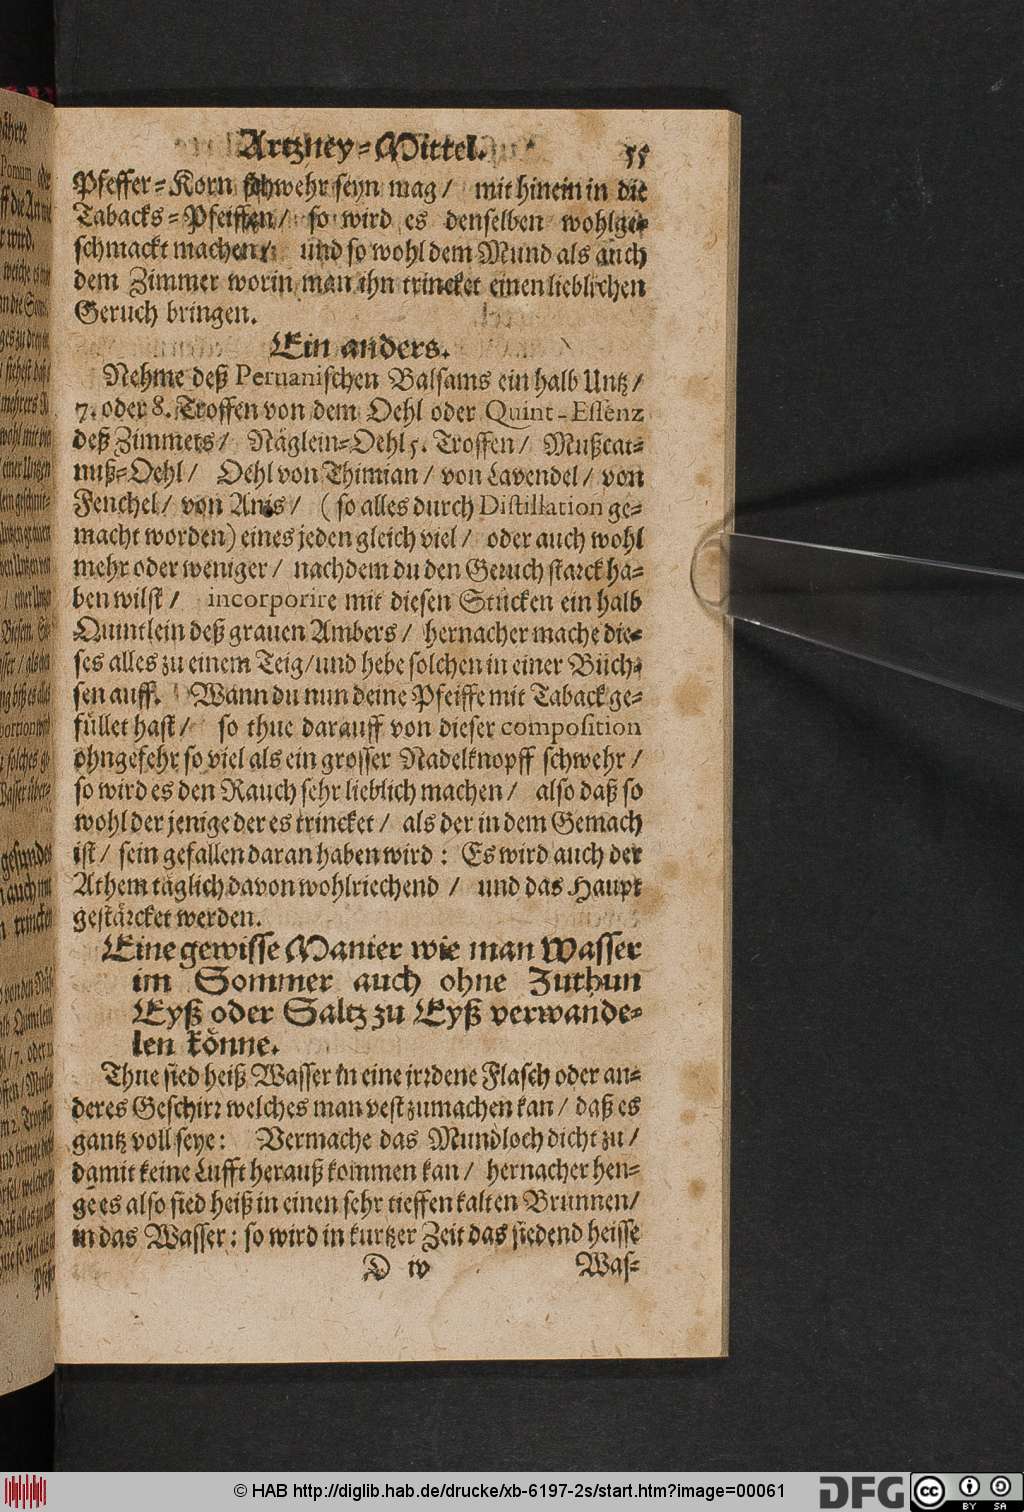 Artzney-Mittel. 55
Pfeffer-Korn schwehr seyn mag / mit hinein in die
Tabacks-Pfeiffen / so wird es denselben wohlge-
schmackt machen / und so wohl dem Mund als auch
dem Zimmer worin man ihn trincket einen lieblichen
Geruch bringen.
Ein anders.
Nehme deß Peruanischen Balsams ein halb Untz /
7. oder 8. Troffen von dem Oehl oder Quint-Essenz
deß Zimmets / Näglein-Oehl 5. Troffen / Mußcat-
nuß-Oehl / Oehl von Thimian / von Lavendel / von
Fenchel / von Anis / ( so alles durch Distillation ge-
macht worden) eines jeden gleich viel / oder auch wohl
mehr oder weniger / nachdem du den Geruch starck ha-
ben wilst / incorporire mit diesen Stücken ein halb
Quintlein deß grauen Ambers / hernacher mache die-
ses alles zu einem Teig / und hebe solchen in einer Büch-
sen auff. Wann du nun deine Pfeiffe mit Taback ge-
füllet hast / so thue darauff von dieser composition
ohngefehr so viel als ein grosser Nadelknopff schwehr /
so wird es den Rauch sehr lieblich machen / also daß so
wohl der jenige der es trincket / als der in dem Gemach
ist / sein gefallen daran haben wird : Es wird auch der
Athem täglich davon wohlriechend / und das Haupt
gestärcket werden.
Eine gewisse Manier wie man Wasser
im Sommer auch ohne Zuthun
Eyß oder Saltz zu Eyß verwande-
len könne.
Thue sied heiß Wasser in eine irrdene Flasch oder an-
deres Geschirr welches man vest zumachen kan / daß es
gantz voll seye : Vermache das Mundloch dicht zu /
damit keine Lufft herauß kommen kan / hernacher hen-
ge es also sied heiß in einen sehr tieffen kalten Brunnen /
in das Wasser : so wird in kurtzer Zeit das siedend heisse
D iv Was-
© HAB http://diglib.hab.de/drucke/xb-6197-2s/start.htm?image=00061
DFG
cc
BY SA